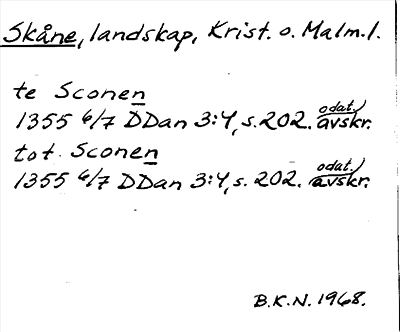 Skåne, landskap, Krist. o. Malm. l.
te Sconen
1355 6/7 DDan 3:4, s. 202. odat. avskr.
tot Sconen
1355 6/7 DDan 3:4, s. 202. odat. avskr.
B.K.N. 1968.